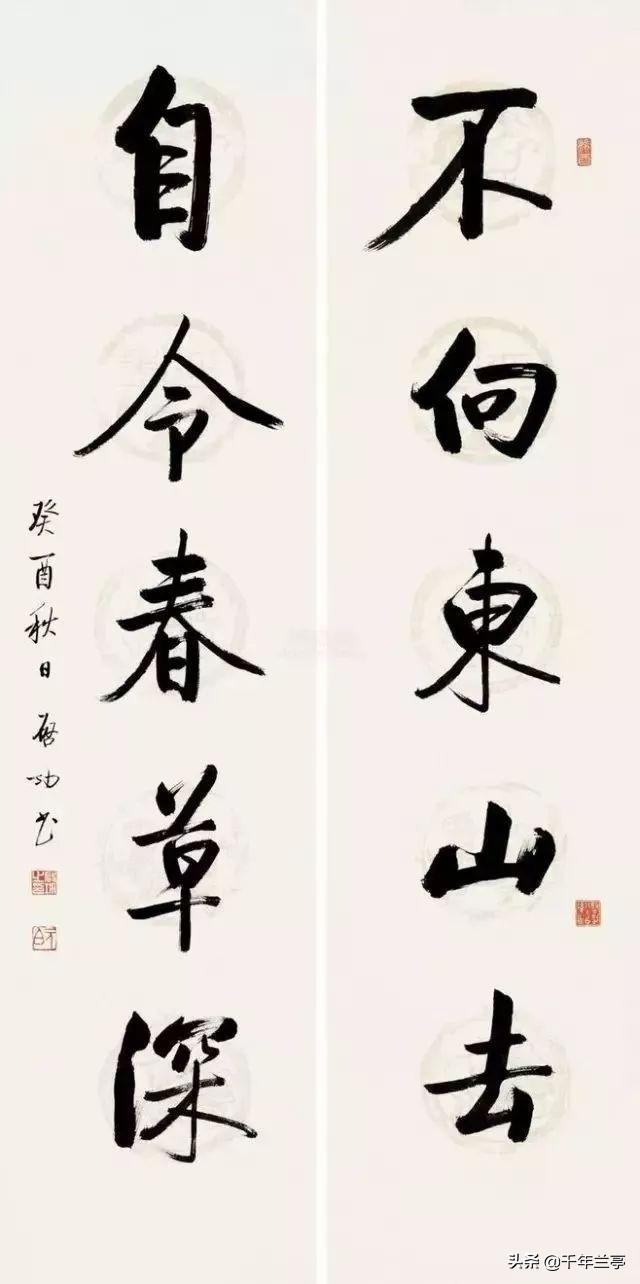 不向東山去
自令春草深
癸酉秋日 啓功书
头条 @千年兰亭